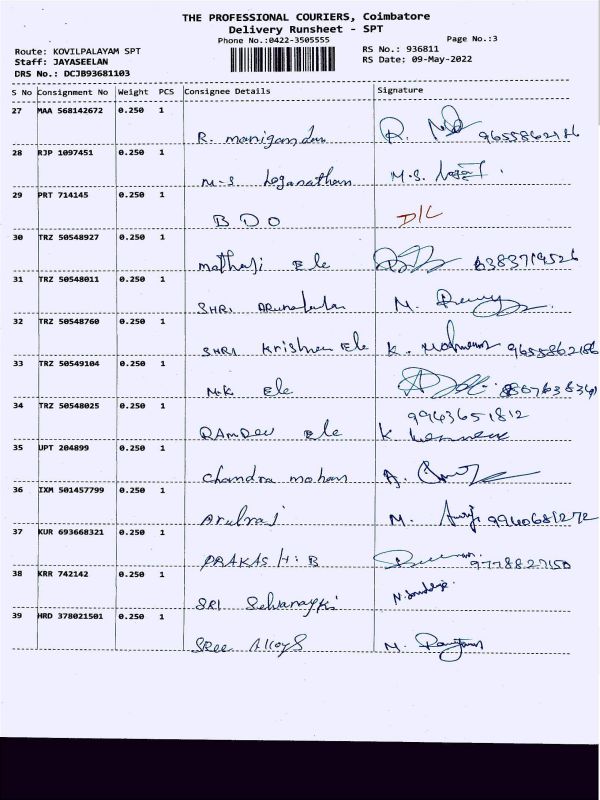 THE PROFESSIONAL COURIERS, Coimbatore
Delivery Runsheet - SPT
Phone No.:0422-3505555
Page No.:3
Route: KOVILPALAYAM SPT
RS No.: 936811
Staff: JAYASEELAN
RS Date: 09-May-2022
DRS No.: DCJB93681103
S No Consignment No Weight PCS Consignee Details Signature
27 MAA 568142672 0.250 1
R. manigandan R. 9655862186
28 RJP 1097451 0.250 1
M-S Loganathan M.S.
29 PRT 714145 0.250 1
B D O D/L
30 TRZ 50548927 0.250 1
mathaji Ele 6383719526
31 TRZ 50548011 0.250 1
SHRI M.
32 TRZ 50548760 0.250 1
SHRI Krishna Ele K. 9655862186
33 TRZ 50549104 0.250 1
M.K Ele
34 TRZ 50548025 0.250 1
9943651812
RAMDEV Ele K
35 UPT 204899 0.250 1
Chandra mohan A.
36 IXM 501457799 0.250 1
Arulraj M. 9940681272
37 KUR 693668321 0.250 1
PRAKASH: B 9778827150
38 KRR 742142 0.250 1
SRI Selvanayki
39 HRD 378021501 0.250 1
Sree Alloys M.